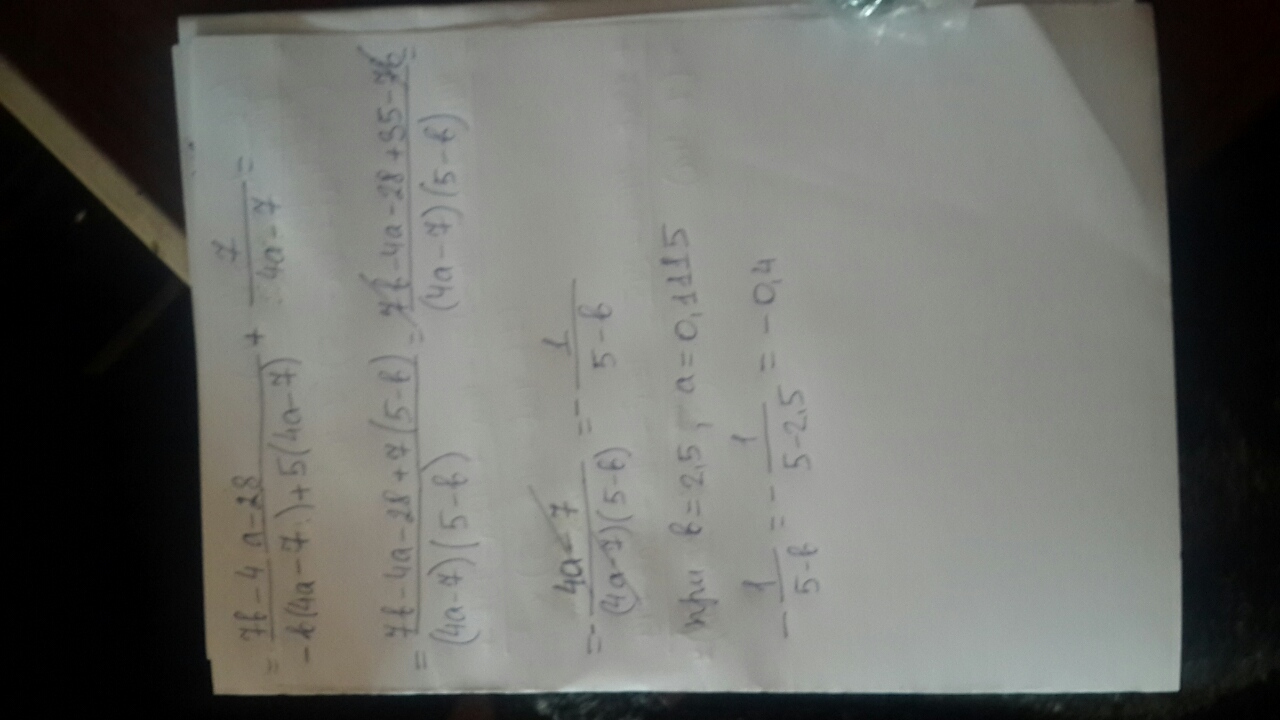 = (7b - 4a - 28)/(-b(4a-7)+5(4a-7)) + 7/(4a-7) =
= (7b-4a-28+7(5-b))/((4a-7)(5-b)) = (7b-4a-28+35-7b)/((4a-7)(5-b)) =
= - (4a-7)/((4a-7)(5-b)) = - 1/(5-b)
при b=2,5, a=0,1115
- 1/(5-b) = - 1/(5-2,5) = -0,4